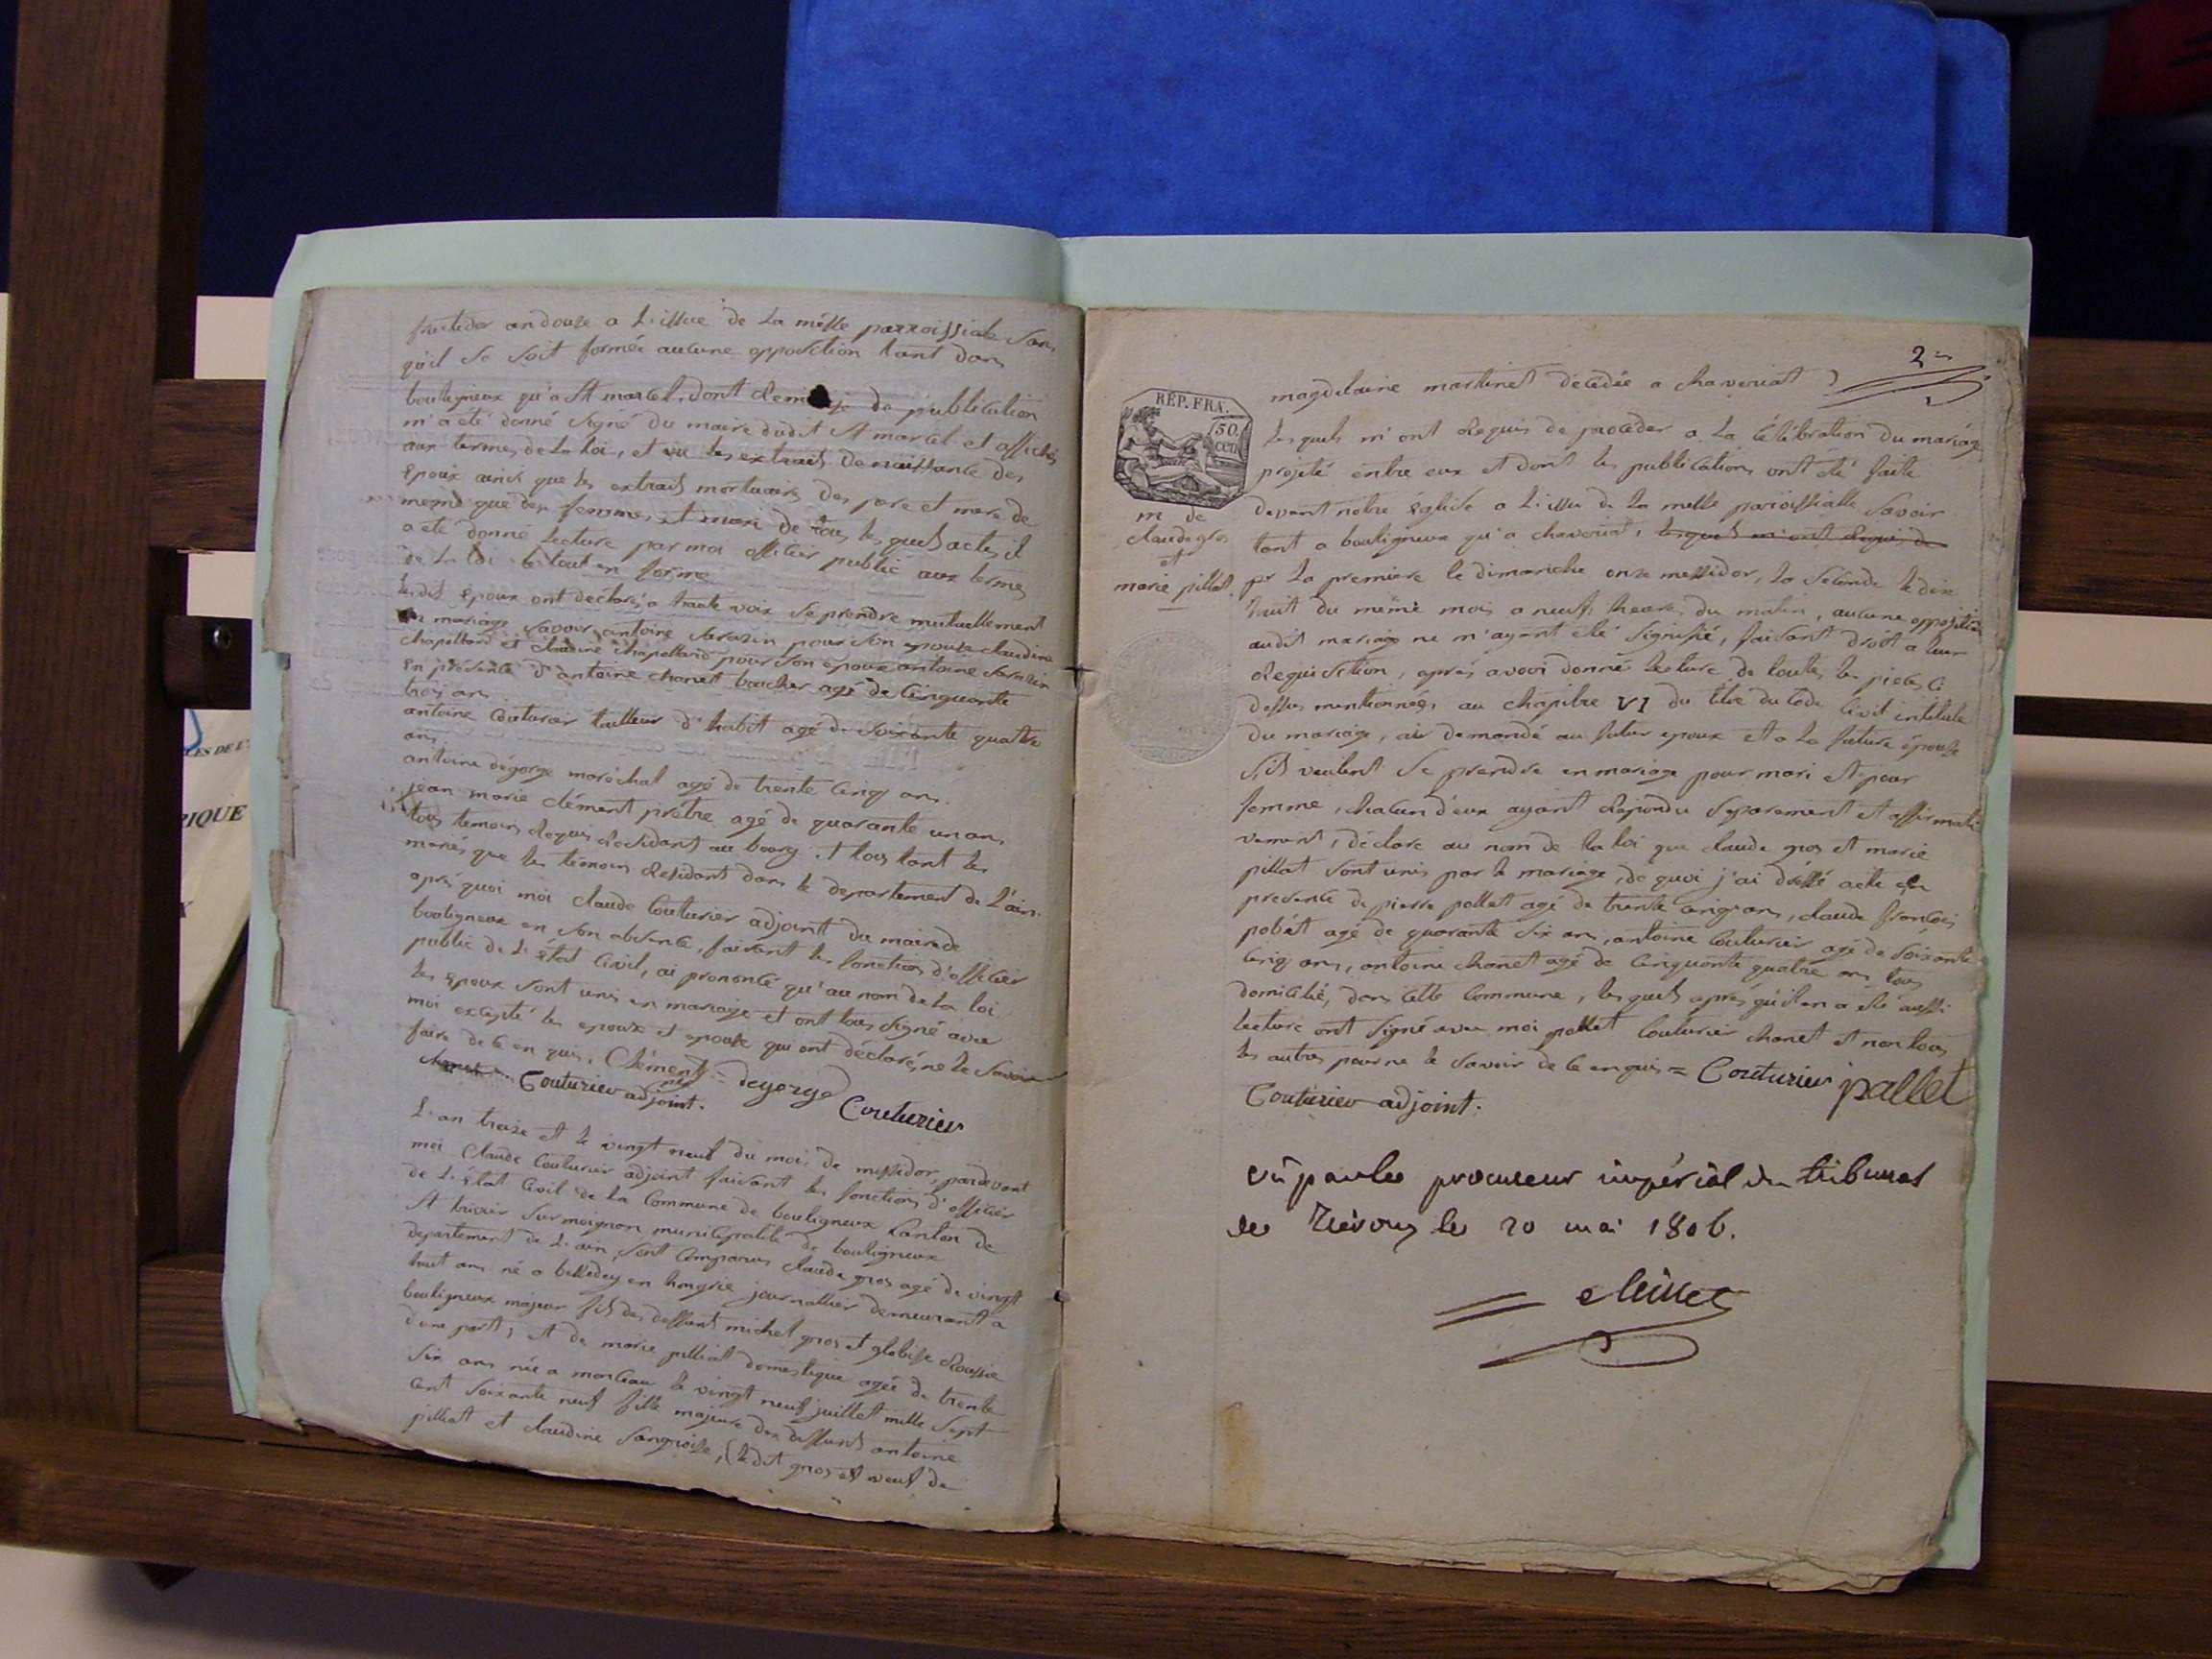 fructidor an douze a L'issue de La messe parroissiale Sans
qu'il Se Soit formée aucune opposition tant dans
bouligneux qu'a St marcel, dont de publication
m'a été donné Signé du maire dudit St marcel et affichés
aux termes de La Loi, et vu les extraits de naissance des
Epoux ainsi que les extraits mortuaires des pere et mere de
meme que des femme et mari de tous les quels actes il
a été donné Lecture par moi officier public aux termes
de La Loi le tout en forme
Lesdits Epoux ont declaré a haute voix Se prendre mutuellement
en mariage Savoir antoine Sarazin pour Son epouse claudine
chapelland et claudine chapelland pour Son epoux antoine Sarazin
En présence d'antoine chanet boucher agé de Cinquante
trois ans
antoine Couturier tailleur d'habit agé de Soixante quatre
ans
antoine dégorge maréchal agé de trente Cinq ans.
jean marie clément prêtre agé de quarante un ans
tous temoins Requis Residant au bourg et tous tant les
mariés que les temoins Residant dans le departement de L'ain.
après quoi moi claude Couturier adjoint du maire de
bouligneux en Son absence, faisant les fonctions d'officier
public de L'État Civil, ai prononcé qu'au nom de La loi
les epoux Sont unis en mariage et ont tous Signé avec
moi excepté les epoux et epouse qui ont déclaré, ne le Savoir
faire de ce en quis. Clément ptre = degorge
chanet Couturier adjoint. Couturier
L'an treize et le vingt neuf du mois de messidor, pardevant
moi Claude Couturier adjoint faisant les fonctions d'officier
de L'État Civil de la Commune de bouligneux Canton de
St trivier Sur moignon municipalité de bouligneux
departement de L'ain, Sont Comparus claude gros agé de vingt
huit ans né a en hongrie journallier demeurant a
bouligneux majeur fils des deffunt michel gros et
d'une part; et de marie pilliat domestique agée de trente
Six ans née a monteau le vingt neuf juillet mille Sept
cent Soixante neuf fille majeure des deffunts antoine
pilliat et claudine , (ledit gros est veuf de
2me
RÉP. FRA.
50 CEN.
magdelaine martinet décédée a chaveriat)
m de
claude gros
et
marie pillat.
Lesquels m'ont Requis de proceder a La Célébration du mariage
projeté entre eux et dont les publications ont été faite
devant notre Église a L'issue de La messe paroissialle Savoir
tant a bouligneux qu'a chaveriat, lesquels m'ont Requis de
pr La premiere le dimanche onze messidor, La Seconde le dix
huit du même mois a neuf heures du matin, aucune opposition
audit mariage ne m'ayant été Signifié, faisant droit a leur
Requisition, après avoir donné lecture de toutes les pieces Ci
dessus mentionnées au chapitre VI du titre du Code Civil intitulé
Du mariage, ai demandé au futur epoux et a La future épouse
S'ils veulent Se prendre en mariage pour mari et pour
femme, chacun d'eux ayant Repondu Separement et affirmati
vement, déclare au nom de La loi que claude gros et marie
pillat Sont unis par le mariage, de quoi j'ai dréssé acte En
presence de pierre pallet agé de trente cinq ans, claude françois
pobét agé de quarante Six ans, antoine Couturier agé de Soixante
Cinq ans, antoine chanet agé de Cinquante quatre ans tous
domicilié, dans Cette Commune, les quels après qu'il en a été aussi
Lecture ont Signé avec moi pallet Couturier chanet et non tous
les autres pour ne le Savoir de ce en quis = Couturier pallet
Couturier adjoint.
vû par le procureur impérial du tribunal
de Trévoux le 20 mai 1806.